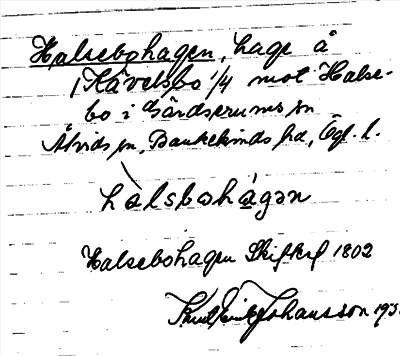 Halsebohagen, hage å
Kävelsbo 1/4 mot Halse-
bo i Gärdserums sn
Åtvids sn, Bankekinds hd, Ögl. l.
halsbohagən
Halsebohagen Skifteskf 1802
Knut Emil Johansson 193